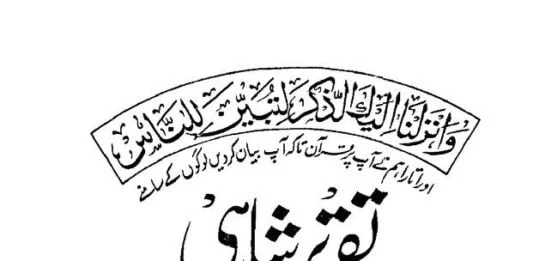 وَاَنْزَلْنَا اِلَيْكَ الذِّكْرَ لِتُبَيِّنَ لِلنَّاسِ
اور اتارا ہم نے آپ پر قرآن تاکہ آپ بیان کردیں لوگوں کے سامنے
تقریر شاہی